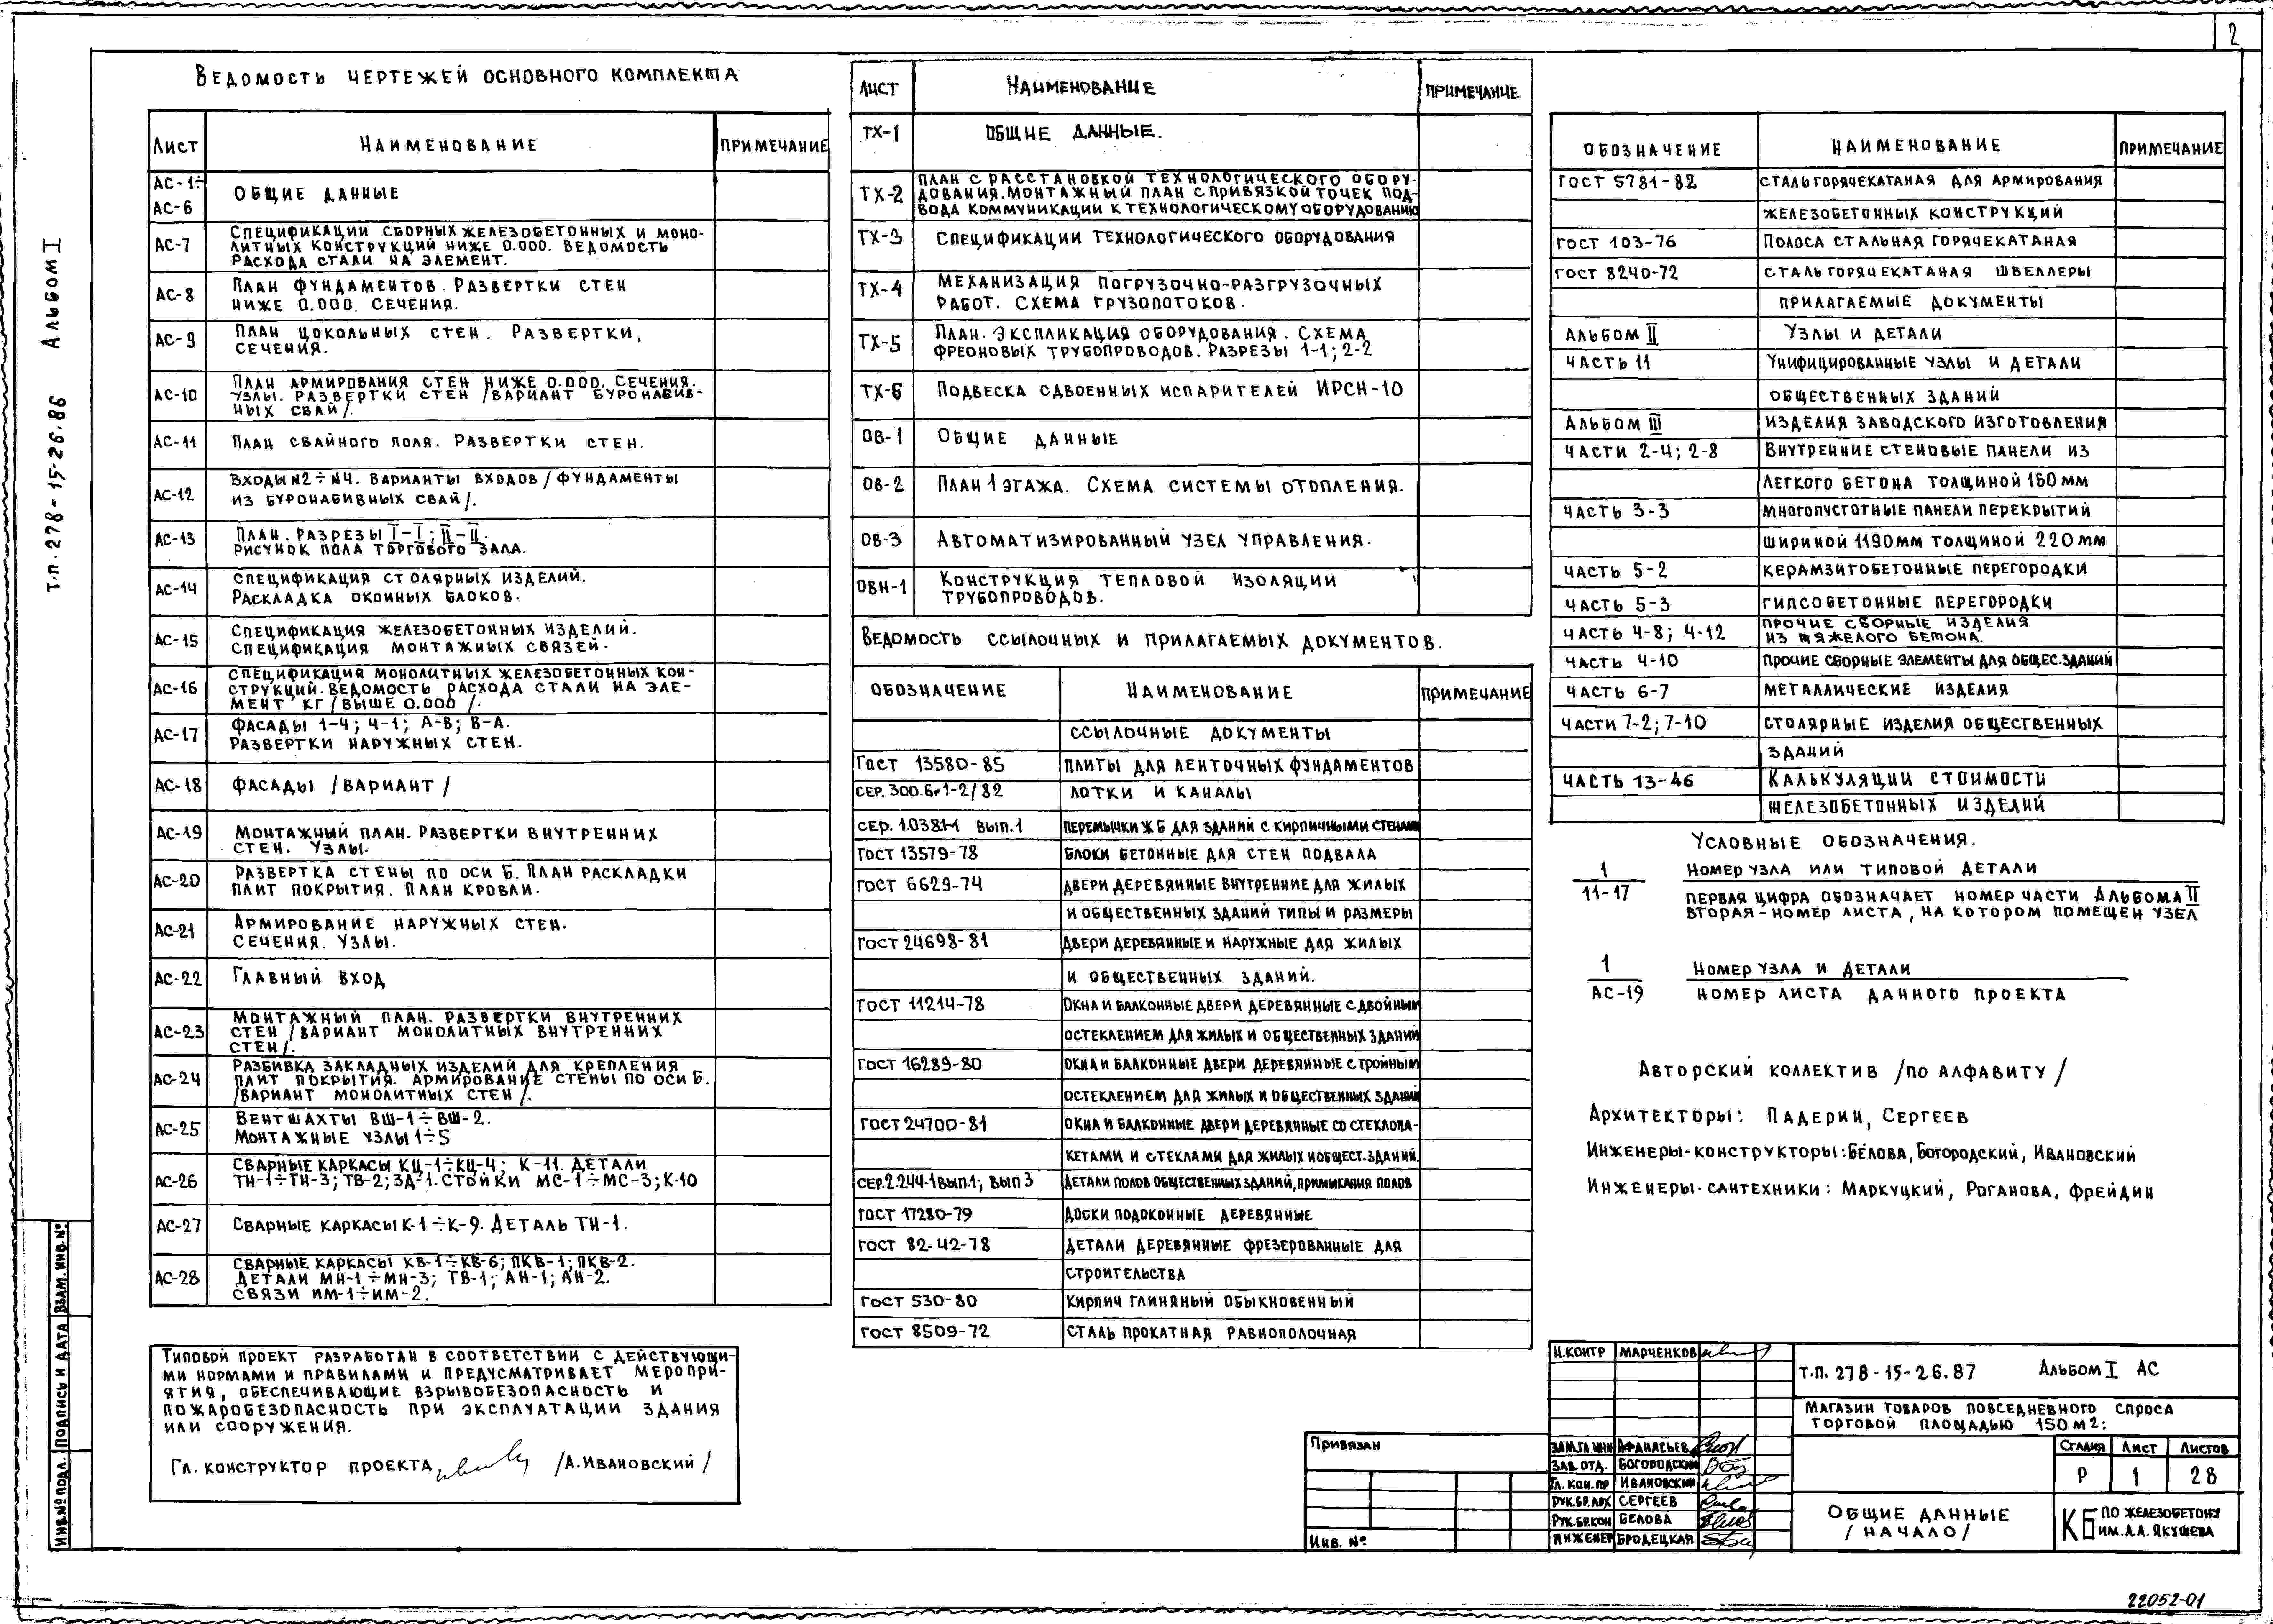 2
Т.П. 278-15-26.86 Альбом I
Ведомость чертежей основного комплекта
Лист Наименование Примечание
АС-1÷
АС-6
Общие данные
АС-7
Спецификации сборных железобетонных и моно-
литных конструкций ниже 0.000. Ведомость
расхода стали на элемент.
АС-8
План фундаментов. Развертки стен
ниже 0.000. Сечения.
АС-9
План цокольных стен. Развертки,
сечения.
АС-10
План армирования стен ниже 0.000. Сечения.
Узлы. Развертки стен /вариант буронабив-
ных свай/.
АС-11 План свайного поля. Развертки стен.
АС-12
Входы №2÷№4. Варианты входов /фундаменты
из буронабивных свай/.
АС-13
План. Разрезы I-I; II-II.
Рисунок пола торгового зала.
АС-14
Спецификация столярных изделий.
Раскладка оконных блоков.
АС-15
Спецификация железобетонных изделий.
Спецификация монтажных связей.
АС-16
Спецификация монолитных железобетонных кон-
струкций. Ведомость расхода стали на эле-
мент кг /выше 0.000/.
АС-17
Фасады 1-4; 4-1; А-В; В-А.
Развертки наружных стен.
АС-18 Фасады /вариант/
АС-19
Монтажный план. Развертки внутренних
стен. Узлы.
АС-20
Развертка стены по оси Б. План раскладки
плит покрытия. План кровли.
АС-21
Армирование наружных стен.
Сечения. Узлы.
АС-22 Главный вход
АС-23
Монтажный план. Развертки внутренних
стен /вариант монолитных внутренних
стен/.
АС-24
Разбивка закладных изделий для крепления
плит покрытия. Армирование стены по оси Б.
/вариант монолитных стен/.
АС-25
Вентшахты ВШ-1÷ВШ-2.
Монтажные узлы 1÷5
АС-26
Сварные каркасы КЦ-1÷КЦ-4; К-11. Детали
ТН-1÷ТН-3; ТВ-2; ЗД-1. Стойки МС-1÷МС-3; К-10
АС-27 Сварные каркасы К-1÷К-9. Деталь ТН-1.
АС-28
Сварные каркасы КВ-1÷КВ-6; ПКВ-1; ПКВ-2.
Детали МН-1÷МН-3; ТВ-1; АН-1; АН-2.
Связи ИМ-1÷ИМ-2.
Типовой проект разработан в соответствии с действующи-
ми нормами и правилами и предусматривает меропри-
ятия, обеспечивающие взрывобезопасность и
пожаробезопасность при эксплуатации здания
или сооружения.
Гл. конструктор проекта /А.Ивановский/
Лист Наименование Примечание
ТХ-1 Общие данные.
ТХ-2
План с расстановкой технологического обору-
дования. Монтажный план с привязкой точек под-
вода коммуникации к технологическому оборудованию
ТХ-3 Спецификации технологического оборудования
ТХ-4
Механизация погрузочно-разгрузочных
работ. Схема грузопотоков.
ТХ-5
План. Экспликация оборудования. Схема
фреоновых трубопроводов. Разрезы 1-1; 2-2
ТХ-6 Подвеска сдвоенных испарителей ИРСН-10
ОВ-1 Общие данные
ОВ-2 План 1 этажа. Схема системы отопления.
ОВ-3 Автоматизированный узел управления.
ОВН-1
Конструкция тепловой изоляции
трубопроводов.
Ведомость ссылочных и прилагаемых документов.
Обозначение Наименование Примечание
Ссылочные документы
Гост 13580-85 Плиты для ленточных фундаментов
Сер. 300.6-1-2/82 Лотки и каналы
Сер. 1.038.1-1 вып.1 Перемычки жб для зданий с кирпичными стенами
Гост 13579-78 Блоки бетонные для стен подвала
Гост 6629-74 Двери деревянные внутренние для жилых
и общественных зданий типы и размеры
Гост 24698-81 Двери деревянные и наружные для жилых
и общественных зданий.
Гост 11214-78 Окна и балконные двери деревянные с двойным
остеклением для жилых и общественных зданий
Гост 16289-80 Окна и балконные двери деревянные с тройным
остеклением для жилых и общественных зданий
Гост 24700-81 Окна и балконные двери деревянные со стеклопа-
кетами и стеклами для жилых и общест. зданий.
Сер.2.244-1 вып.1; вып 3 Детали полов общественных зданий, примыкания полов
Гост 17280-79 Доски подоконные деревянные
Гост 82-42-78 Детали деревянные фрезерованные для
строительства
Гост 530-80 Кирпич глиняный обыкновенный
Гост 8509-72 Сталь прокатная равнополочная
Обозначение Наименование Примечание
Гост 5781-82 Сталь горячекатаная для армирования
железобетонных конструкций
Гост 103-76 Полоса стальная горячекатаная
Гост 8240-72 Сталь горячекатаная швеллеры
Прилагаемые документы
Альбом II Узлы и детали
Часть 11 Унифицированные узлы и детали
общественных зданий
Альбом III Изделия заводского изготовления
Части 2-4; 2-8 Внутренние стеновые панели из
легкого бетона толщиной 160 мм
Часть 3-3 Многопустотные панели перекрытий
шириной 1190мм толщиной 220мм
Часть 5-2 Керамзитобетонные перегородки
Часть 5-3 Гипсобетонные перегородки
Часть 4-8; 4-12
Прочие сборные изделия
из тяжелого бетона.
Часть 4-10 Прочие сборные элементы для общес. зданий
Часть 6-7 Металлические изделия
Части 7-2; 7-10 Столярные изделия общественных
зданий
Часть 13-46 Калькуляции стоимости
железобетонных изделий
Условные обозначения.
1 Номер узла или типовой детали
11-17 Первая цифра обозначает номер части Альбома II
вторая - номер листа, на котором помещен узел
1 Номер узла и детали
АС-19 Номер листа данного проекта
Авторский коллектив /по алфавиту/
Архитекторы: Падерин, Сергеев
Инженеры-конструкторы: Белова, Богородский, Ивановский
Инженеры-сантехники: Маркуцкий, Роганова, Фрейдин
Привязан
Инв. №
Н.контр Марченков
Зам.гл.инн Афанасьев
Зав.отд. Богородский
Гл. кон. пр Ивановский
Рук.бр.арх Сергеев
Рук.бр.кон Белова
Инженер Бродецкая
Т.П. 278-15-26.87 Альбом I АС
Магазин товаров повседневного спроса
торговой площадью 150 м2:
Стадия Лист Листов
Р 1 28
Общие данные
/начало/
КБ по железобетону
им. А.А. Якушева
Инв.№ подл. Подпись и дата Взам. инв.№
22052-01